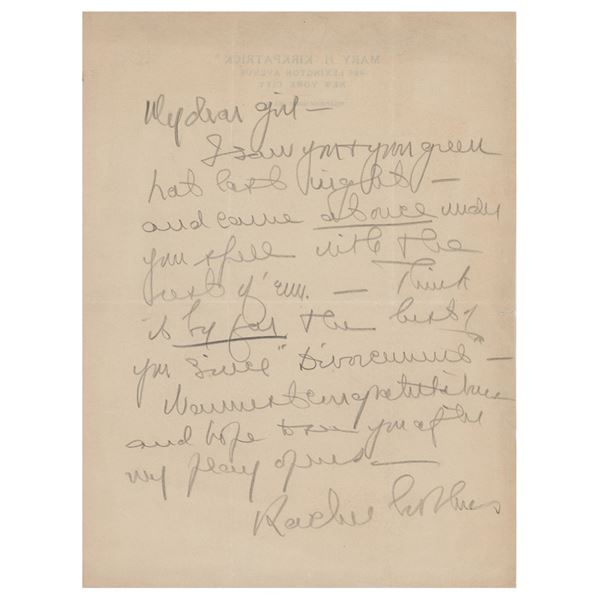 MARY H. KIRKPATRICK
LEXINGTON AVENUE
NEW YORK CITY
My dear girl —
I saw you & your green
hat last night —
and came at once under
your spell with the
rest of 'em. — Think
it by far the best of
you since "Divorcement" —
Warmest congratulations
and hope to see you after
my play opens —
Rachel Crothers